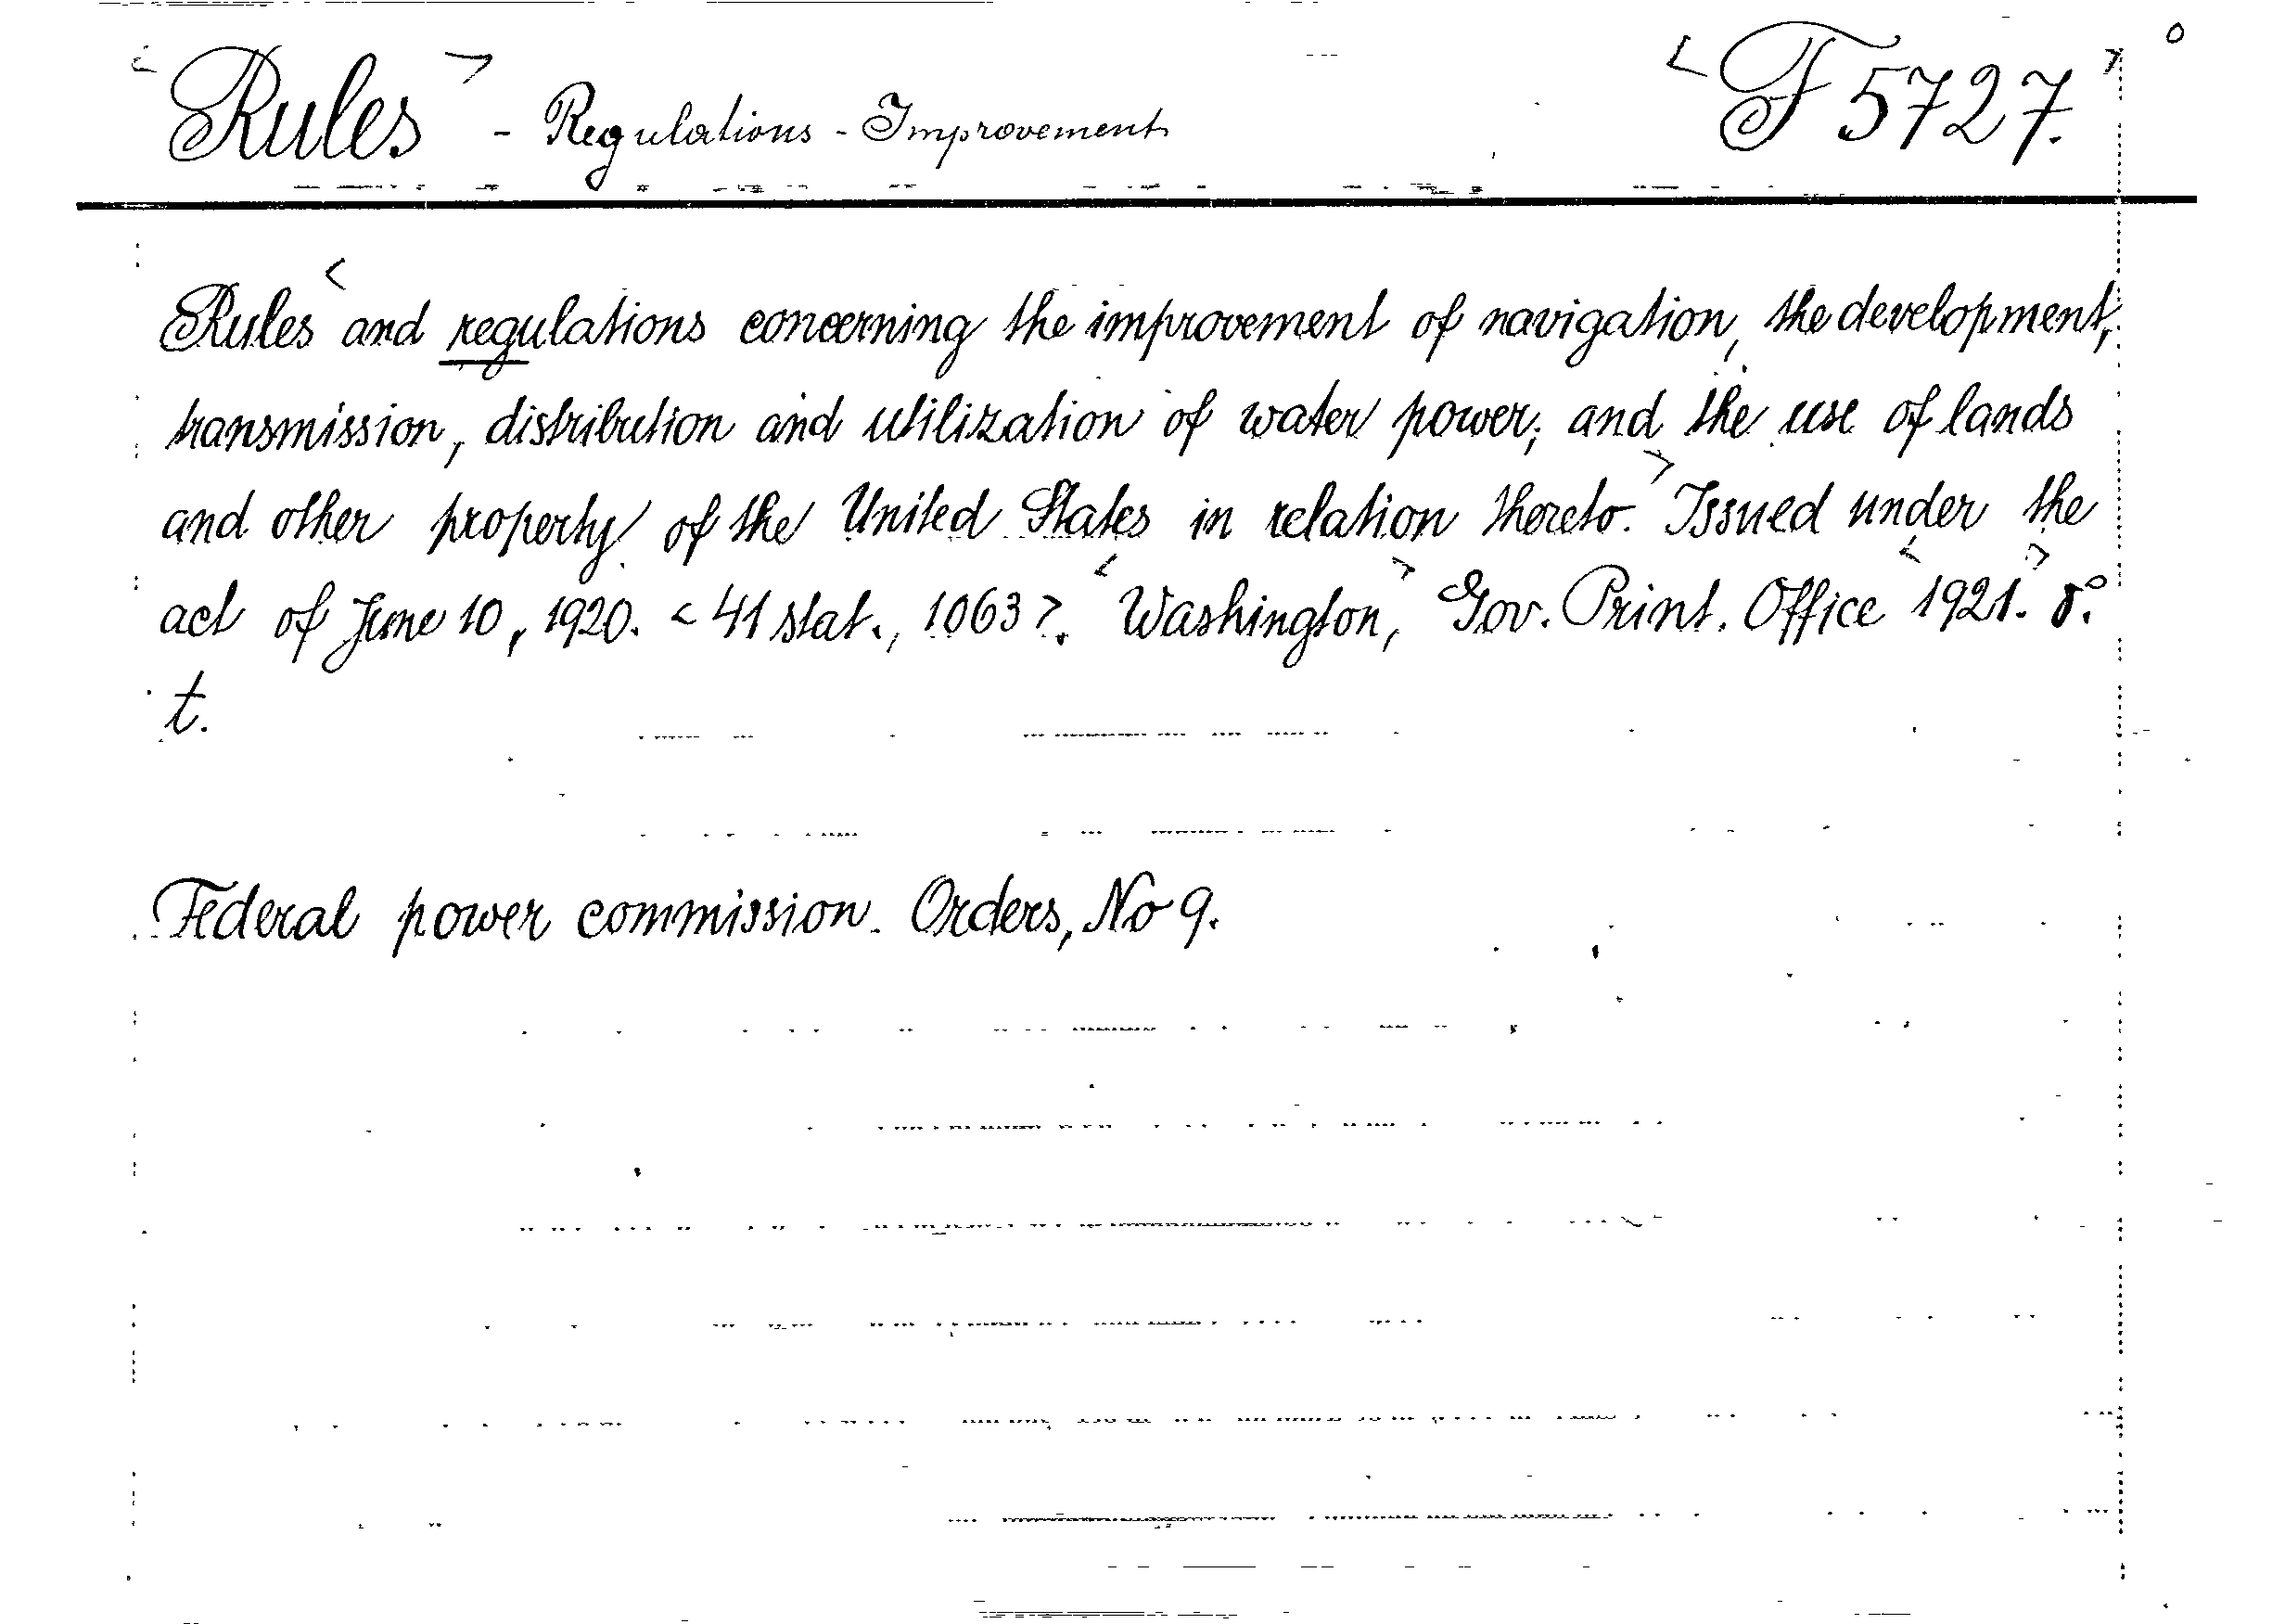 <Rules> - Regulations - Improvement <F 5727.>
Rules <and regulations concerning the improvement of navigation, the development,
transmission, distribution and utilization of water power; and the use of lands
and other property of the United States in relation thereto.> Issued under the
act of June 10, 1920. <41 stat., 1063>. <Washington,> Gov. Print. Office <1921.> 8°.
t.
Federal power commission. Orders, No 9.